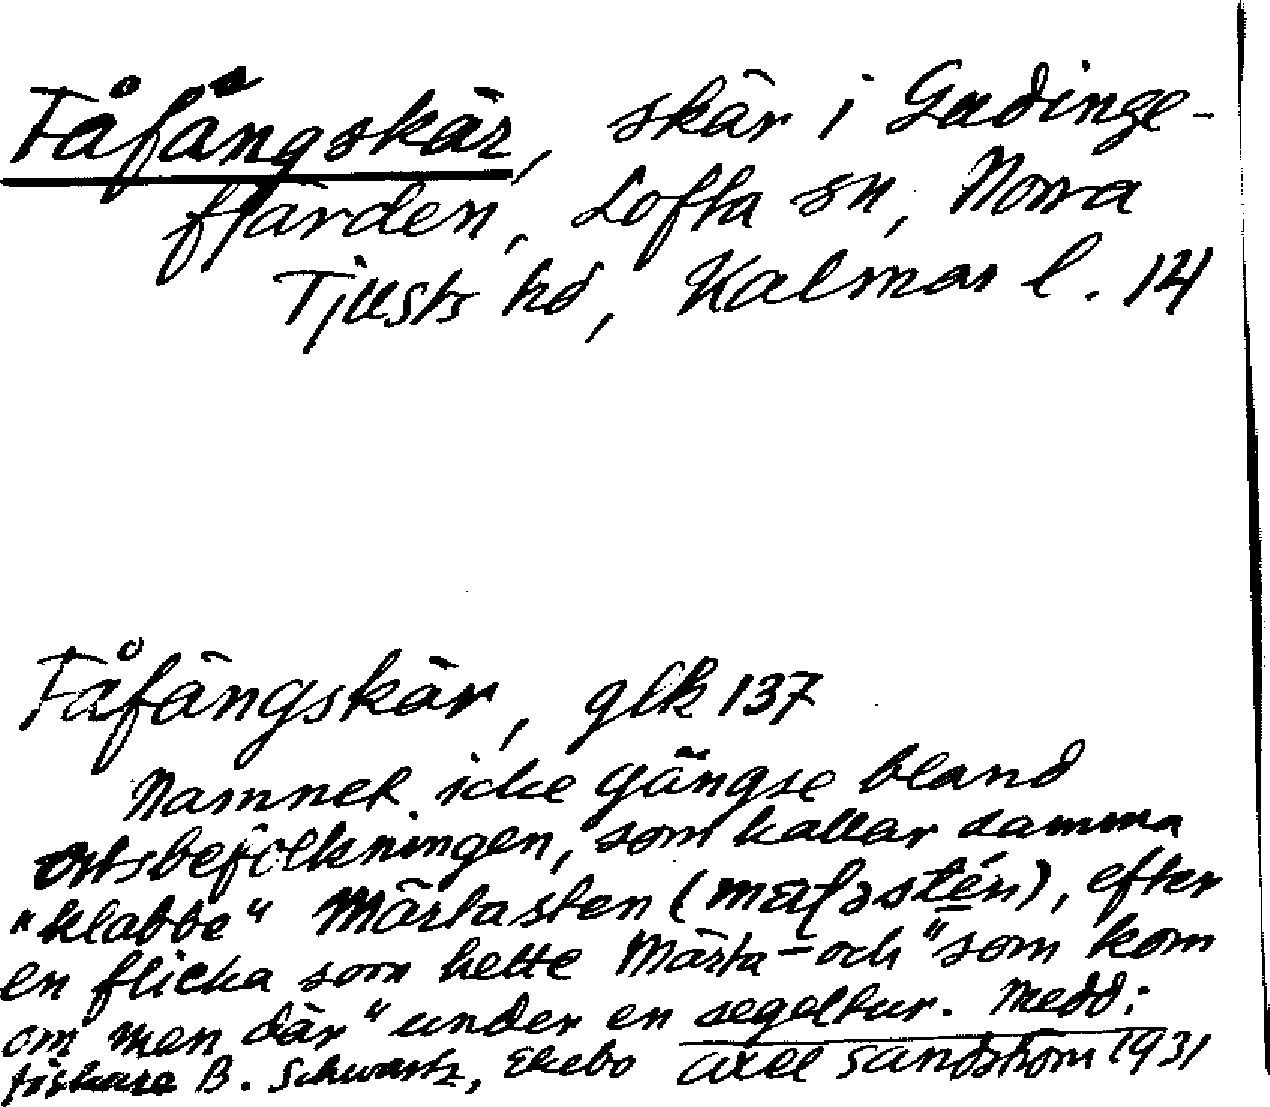 Fåfängskär, skär i Gudinge-
fjärden, Lofta sn, Norra
Tjusts hd, Kalmar l. 14
Fåfängskär, glk 137
Namnet icke gängse bland
ortsbefolkningen, som kallar damma
"klabbe" Märtasten (), efter
en flicka som hette Märta – och "som kom
om men där" under en segeltur. Medd:
fiskare B. Schwartz, Ekebo Axel Sandström 1931